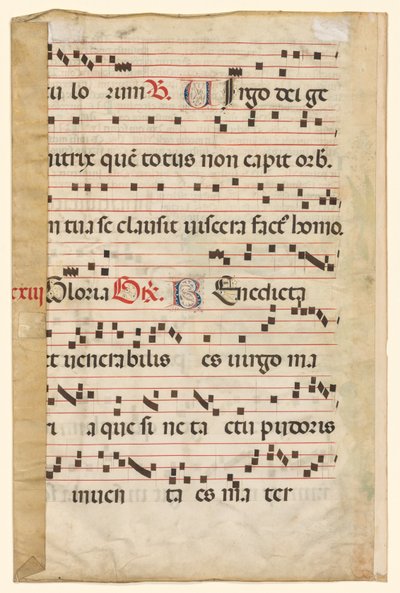 cu lo rum ℟. Uirgo dei ge
nitrix quē totus non capit orb̄.
in tua se clausit uiscera fact' homo.
xxiij Gloria Gr̄. Benedicta
et uenerabilis es uirgo ma
ri a que si ne ta ctu pudoris
inuen ta es ma ter